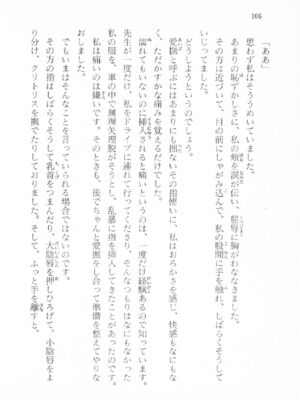 106
「ああ」
思わず私はそううめいていました。
あまりの恥ずかしさに、私の頬を涙が伝い、屈辱に胸がわななきました。
その方は近づいて、目の前にしゃがみ込んで、私の股間に手を触れ、しばらくそうして
いじってました。
どうしようというのでしょう。
愛撫と呼ぶにはあまりにも拙ないその指使いに、私はおろかさを感じ、快感もなにもな
く、ただかすかな痛みを覚えるだけでした。
濡れてもいないのに挿入されると痛いというのは、一度だけ経験あるので知っています。
先生が一度だけ、私をドライブに連れて行ってくださり、そんなつもりはなにもなかった
私の服を、車の中で無理矢理脱がそうとし、乱暴に指を挿入してきたことがあったのです。
私は痛いのは嫌いです。そのときも、後でちゃんと愛撫をし合って準備を整えてやりな
おしました。
でもいまはそんなことを言っていられる場合ではないのです。
その方の指はしばらくそうして乳首をつまんだり、大陰唇を押しひろげて、小陰唇をよ
り分け、クリトリスを撫でたりしておりました。そして、ふっと手を離すと、